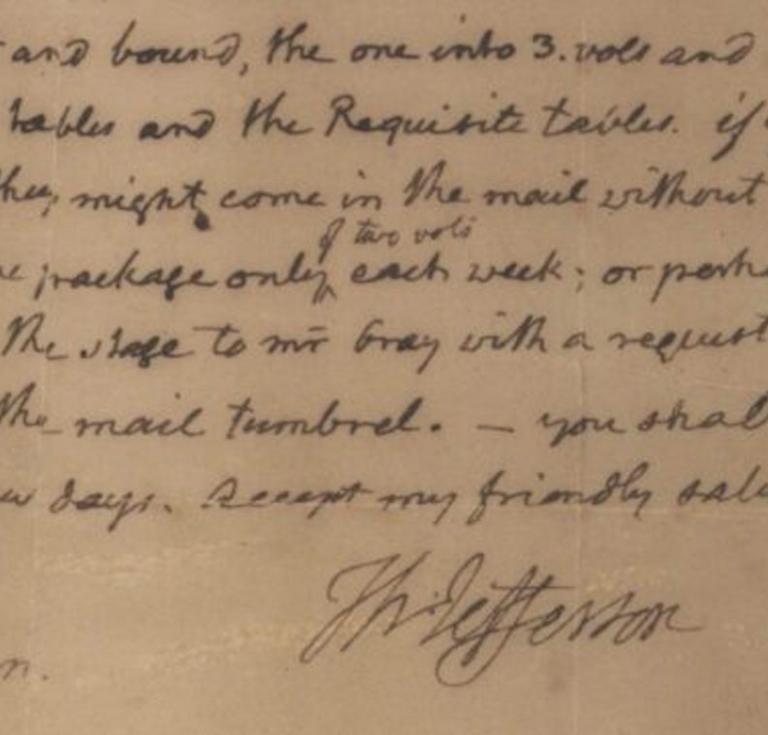 and bound, the one into 3. vols and
tables and the Requisite tables. if
they might come in the mail without
of two vols
package only each week; or perha
the stage to mr Gray with a request
the mail tumbrel. — you shal
w days. Accept my friendly salu
Th: Jefferson
n.